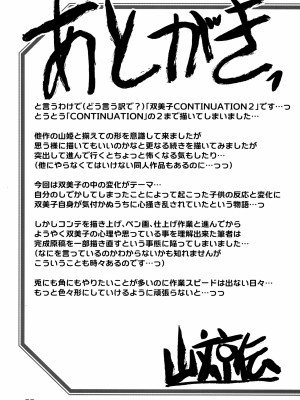 あとがき,
と言うわけで(どう言う訳で?)「双美子CONTINUATION2」です…っ
とうとう「CONTINUATION」の2まで描いてしまいました…
他作の山姫と揃えての形を意識して来ましたが
思う様に描いてもいいのかなと更なる続きを描いてみましたが
突出して進んで行くとちょっと怖くなる気もしたり…
(他にやらなくてはいけない同人作品もあるのに…っっ)
今回は双美子の中の変化がテーマ…
自分のしでかしてしまったことによって起こった子供の反応と変化に
双美子自身が気付かぬうちに心掻き乱されていたという物語…っ
しかしコンテを描き上げ、ペン画、仕上げ作業と進んでから
ようやく双美子の心理や思っている事を理解出来た筆者は
完成原稿を一部描き直すという事態に陥ってしまいました…
(なにを言っているのかわからないかも知れませんが
こういうことも時々あるのです…っ)
兎にも角にもやりたいことが多いのに作業スピードは出ない日々…
もっと色々形にしていけるように頑張らないと…っっ
山文京伝